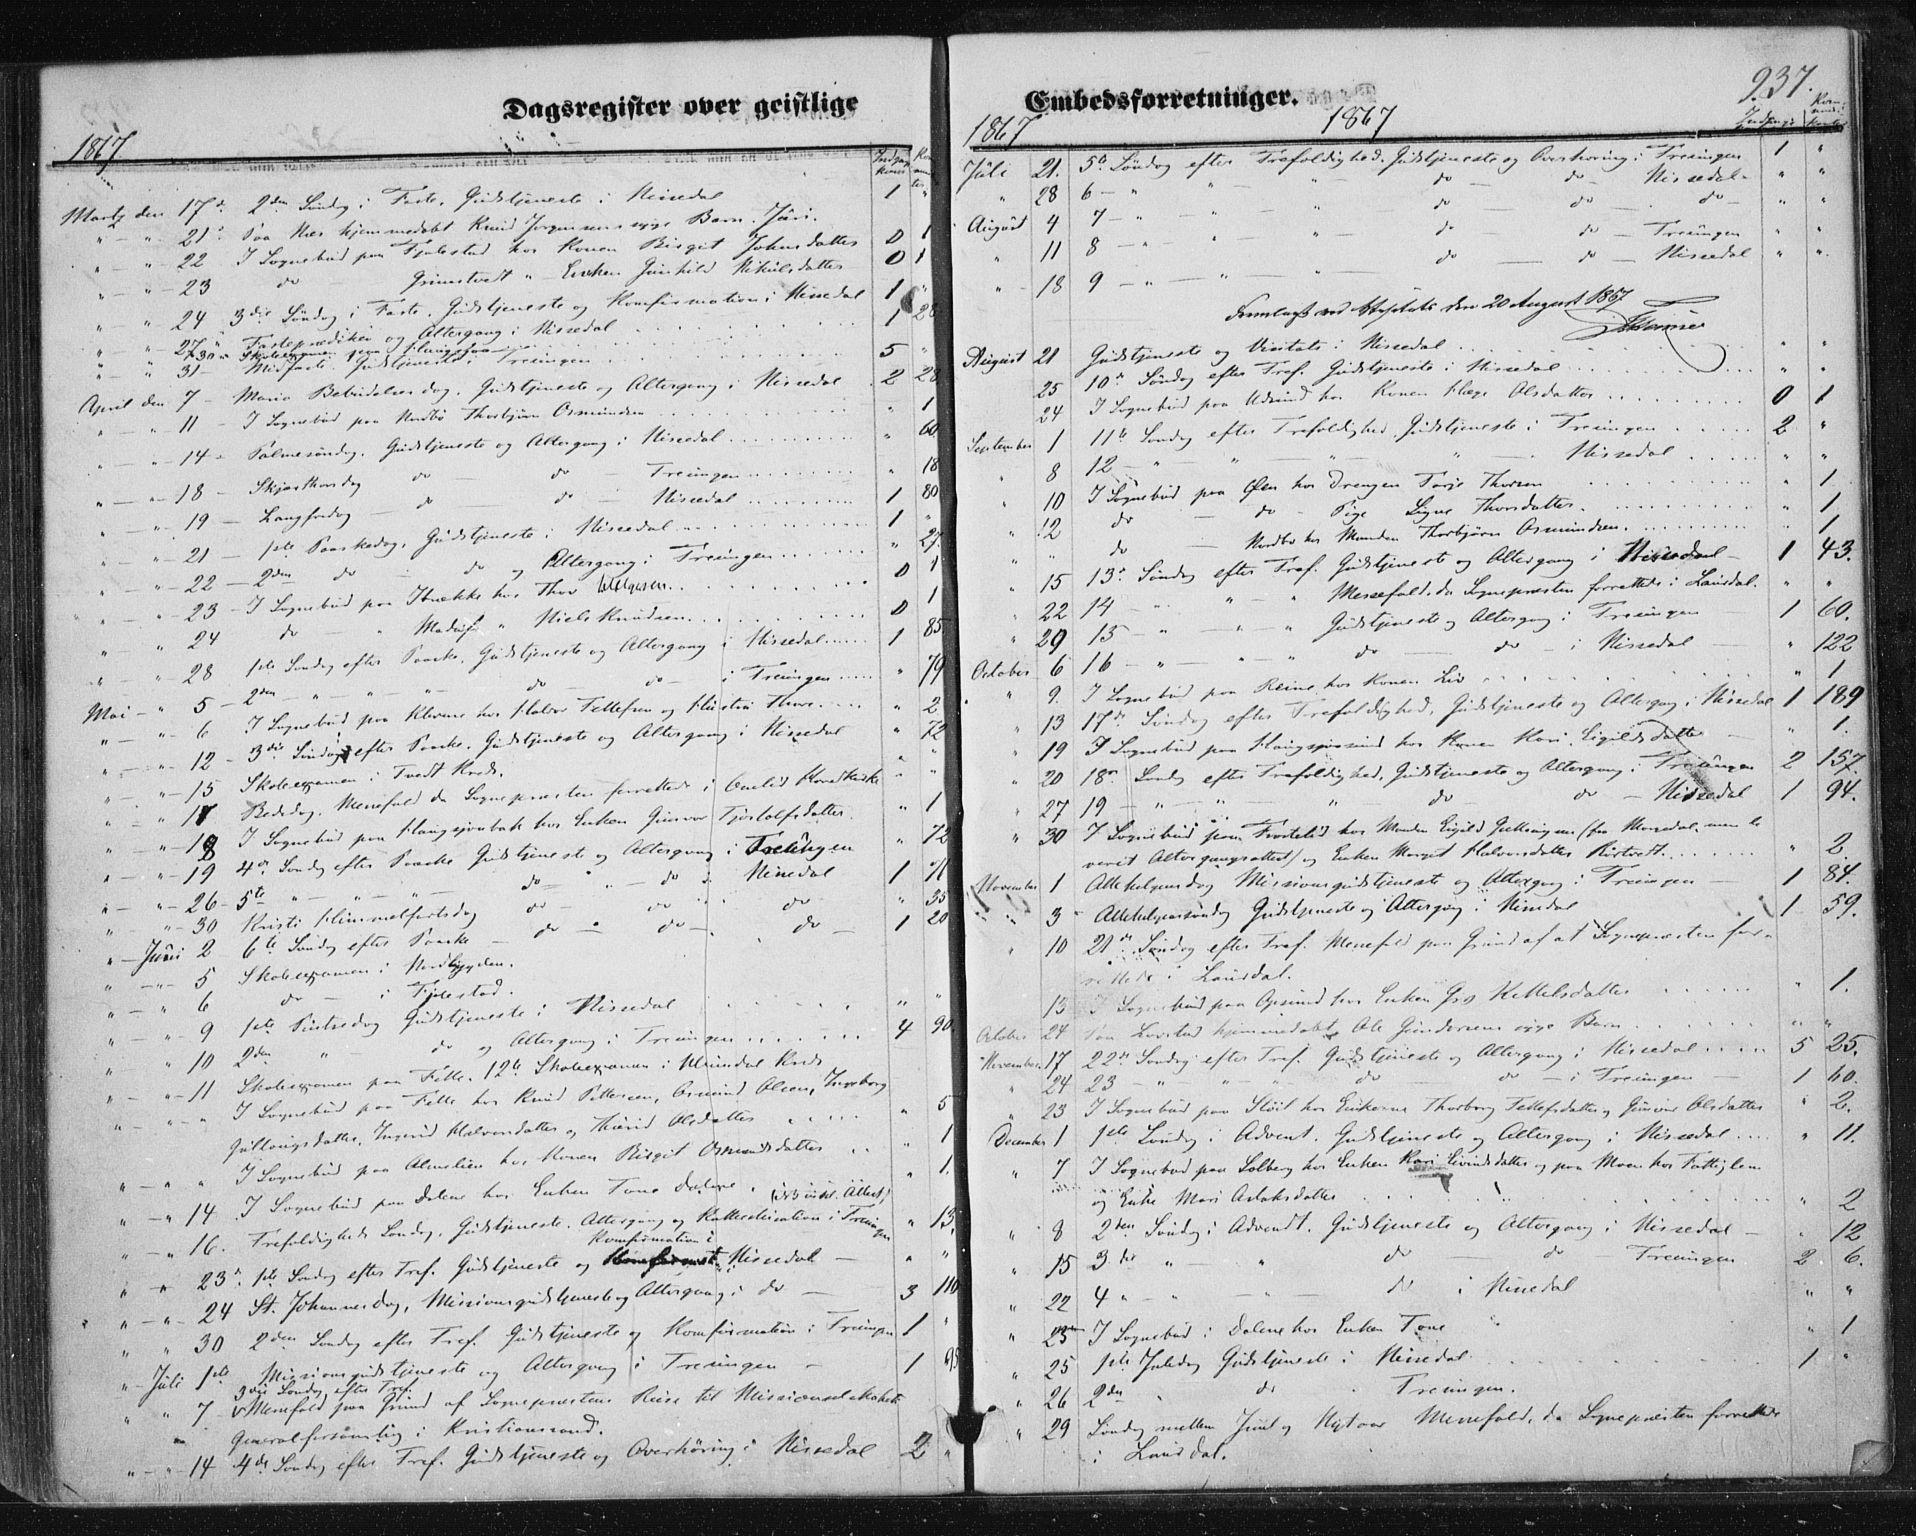 Dagsregister over geistlige
Embedsforretninger.
937.
1867
1867
1867
Martz den 17de 2den Søndag i Faste. Gudstjeneste i Nissedal 1 "
" - " - 21de Paa Næs hjemmedøbt Knud Jørgensens syge Barn. Jüri.
" - " - 22 I Sognebud paa Fjalestad hos Konen Birgit Johnsdatter 0 1
" - " - 23 do Grimstvedt " Enken Gunhild Nikulsdatter 0 1
" - " - 24 3die Søndag i Faste. Gudstjeneste og Konfirmation i Nissedal 1 "
" - " - 27 " Fasteprædiken og Altergang i Nissedal 1 28
" - " 31 - Midfaste. Gudstjeneste. Treungen 5 "
April den 7 - Maria Bebudelsesdag, Gudstjeneste og Altergang i Nissedal 2 28
" - " 11 - I Sognebud paa Nordbø Thorbjørn Osmundsen " 1
" - " - 14 - Palmesøndag. Gudstjeneste og Altergang i Nissedal " 60
" - " - 18 - Skjærthorsdag do - do - Treungen " 18
" - 19 - Langfredag - do - do - Nissedal 1 80
" - " 21 - 1ste Paaskedag, Gudstjeneste i Nissedal 1 "
" - " 22 - 2den do - do og Altergang i Treungen " 27
" - " 23 - I Sognebud paa hos Thor 0 1
" " 24 do " " Niels Knudsen 0 1
" - " 28 1ste Søndag efter Paaske. Gudstjeneste og Altergang i Nissedal 1 85
Mai - " 5 - 2den - " - " - " - do - do - i Treungen " 79
" - " 6 I Sognebud paa Klevene hos Halvor Tellefsen og Hustru Thore " 2
" - " 12 - 3die Søndag efter Paaske. Gudstjeneste og Altergang i Nissedal " 72
" - " 15 Skoleexamen i Tvedt Kreds. " "
" - " - 17 Bededag. Messefald da Sognepræsten forrettede i Omlid Hovedkirke " "
" - " - 18 I Sognebud paa Haugsjaabak hos Enken Gunvor Tjostolfsdatter " 1
" - " - 19 4de Søndag efter Paaske Gudstjeneste og Altergang i Treungen " 72
" - " 26 - 5te " - " - " - do - " - do Nissedal 1
" - " 30 Kristi Himmelfartsdag do - do do " 35
" - Juni 2 6te Søndag efter Paaske - do - do - do - 1 20
" - " - 5 Skoleexamen i Nordbygden.
" - " 6 do - i Fjalestad.
" - " 9 1ste Pintsedag Gudstjeneste i Nissedal " "
" " 10 2den " do og Altergang i Treungen 4 90.
" - " 11 Skoleexamen paa Felle. 12te Skoleexamen i Kreds
" - " - " I Sognebud paa Felle hos Knud Pettersen, Osmund Olsen, Ingeborg
Gullaugsdatter, Ingerid Halvorsdatter og Thurid Olsdatter " 5
" - " " I Sognebud paa Almelien hos Konen Birgit Osmundsdatter " 1
" - " 14 I Sognebud paa Dalene hos Enken Tone Dalene " 1.
" - " 16. Trefoldigheds Søndag. Gudstjeneste. Altergang og Katekisation i Treungen " 13.
" " 23de 1ste Søndag efter Tref. Gudstjeneste og Konfirmation i Nissedal - " "
" - " 24 St. Johannesdag, Missionsgudstjeneste og Altergang i do - 3 110
" " 30 2den Søndag efter Tref. Gudstjeneste og Konfirmation i Treungen 1 "
" - Juli 1ste Missionsgudstjeneste og Altergang i Treungen - 1 95
3die Søndag efter Tref.
" " 7 Messefald paa Grund af Sognepræstens Reise til Missionsselskabets
Generalforsamling i Kristianssand.
" - " - 14 4de Søndag efter Tref. Gudstjeneste og Overhøring i Nissedal 2 "
Juli 21. 5te Søndag efter Trefoldighed. Gudstjeneste og Overhøring i Treungen 1 "
" 28 6 - " " " do - do - Nissedal " "
August 4 7 - " " " do do - do - " "
" 11 8 - " " " do do - Treungen " "
" 18 9 - " - " " do do - Nissedal " "
Fremlagt ved Visitats den 20 August 1867
August 21 Gudstjeneste og Visitats i Nissedal " "
25 10de Søndag efter Tref. Gudstjeneste i Nissedal " "
24 I Sognebud paa hos Konen Hæge Olsdatter 0 1
September 1 11te Søndag efter Trefoldighed. Gudstjeneste i Treungen 2 "
8 12 - " - " - " - Nissedal " "
10 I Sognebud paa Øen hos Drengen Tarje Thorsen " 1
" 12 do - do - Pige Signe Thorsdatter " 1
" " do - Nordbø hos Manden Thorbjørn Osmundsen. " 1
" 15 13de Søndag efter Tref. Gudstjeneste og Altergang i Nissedal - 1 43.
" 22 14 " " - " Messefald, da Sognepræsten forrettede i Laurdal. " "
" 29 15 - " " - " Gudstjeneste og Altergang i Treungen - 1 60.
October 6 16 - " - " - " do - do - i Nissedal - " 122
" 9. I Sognebud paa Reine hos Konen Liv " 1
" 13 17de Søndag efter Trefoldighed, Gudstjeneste og Altergang i Nissedal 1 189
" 19 I Sognebud paa Haugsjaasund hos Konen Kari Eigilsdatter - " 1.
" 20 18de Søndag efter Trefoldighed, Gudstjeneste og Altergang i Treungen 2 157.
" 27 19 - " - " " do do - Nissedal 1 94.
" 30 I Sognebud paa hos Manden Eigild (fra men le
veret Altergangsattest) og Enken Margit Halvorsdatter " 2
November 1 Allehelgensdag Missionsgudstjeneste og Altergang i Treungen - 1 84.
" " 3 Allehelgenssøndag Gudstjeneste og Altergang i Nissedal 1 59.
" 10 21de Søndag efter Tref. Messefald paa Grund af at Sognepræsten for-
rettede i Laurdal.
13 I Sognebud paa Opsund hos Enken Gro Kettelsdatter " 1.
October 24 Paa hjemmedøbt Ole Gundersens syge Barn " "
November 17 22de Søndag efter Tref. Gudstjeneste og Altergang i Nissedal 5 25.
" 24 23 " " " do - do - i Treungen - 1 60.
" 23 I Sognebud paa Støil hos Enkerne Thorborg Tellefsdatter og Gunvor Olsdatter " 2.
December 1 1ste Søndag i Advent. Gudstjeneste og Altergang i Nissedal " 11.
" 7 I Sognebud paa Solberg hos Enken Kari Eivindsdatter og paa Moen hos Fattiglem
og Enke Mari Aslaksdatter " 2
" 8 2den Søndag i Advendt. Gudstjeneste og Altergang i Nissedal - " 12
" 15 3die " - " do - do - Treungen 2 6.
" 22 4 " - " - " do i Nissedal " "
" 23 I Sognebud i Dalene hos Enken Tone " 1
" 25 1ste Juledag Gudstjeneste i Nissedal 1 "
" 26 2den " do " Treungen.
" 29 Søndag mellem Juul og Nytaar Messefald, da Sognepræsten forrettede
i Laurdal.